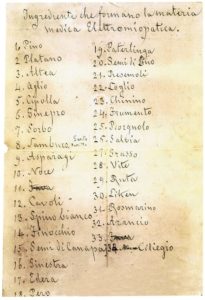 Ingredienti che formano la materia
medica Elettromiopatica.
1. Pino
2. Platano
3. Altea
4. Aglio
5. Cipolla
6. Ginepro
7. Sorbo
8. Sambuco
9. Asparagi
10. Noce
11.
12. Cavoli
13. Spino bianco
14. Finocchio
15. Semi di Canapa
16. Ginestra
17. Edera
18. Pero
19. Paterlinga
20. Semi di Lino
21. Tresemoli
22. Loglio
23. Chinino
24. Frumento
25. Pisognolo
26. Salvia
27. Grasso
28. Vite
29. Ruta
30. Liken
31. Rosmarino
32. Arancio
33.
Ciliegio